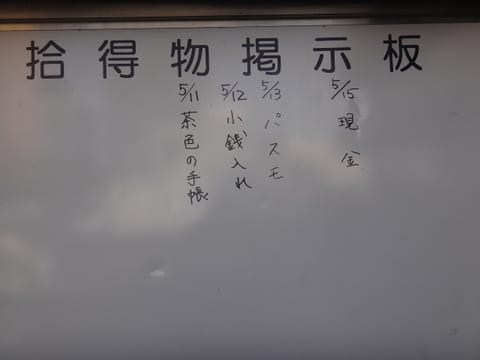 拾得物掲示板
5/11 茶色の手帳
5/12 小銭入れ
5/13 パスモ
5/15 現金